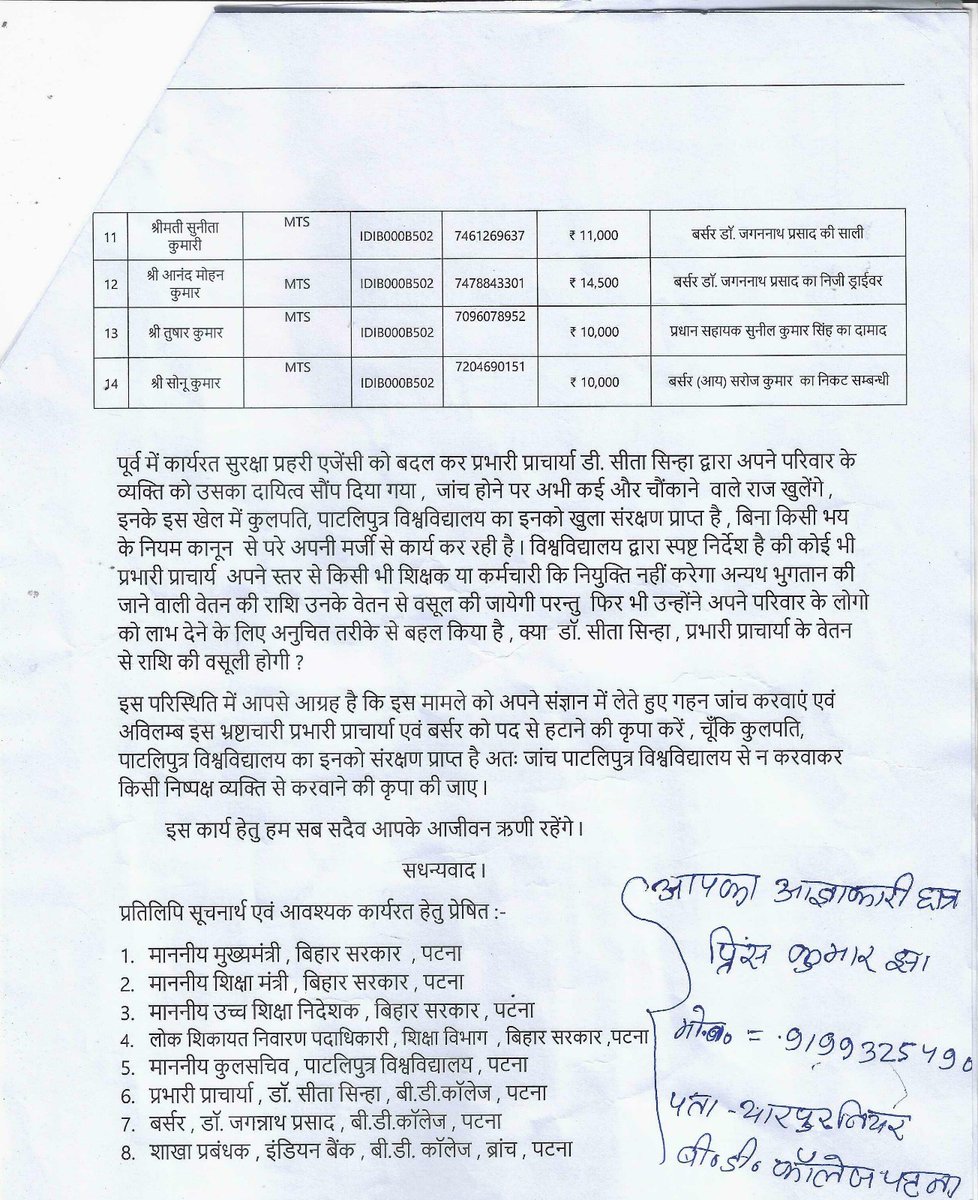 11 श्रीमती सुनीता कुमारी MTS IDIB000B502 7461269637 ₹ 11,000 बर्सर डॉ. जगननाथ प्रसाद की साली
12 श्री आनंद मोहन कुमार MTS IDIB000B502 7478843301 ₹ 14,500 बर्सर डॉ. जगननाथ प्रसाद का निजी ड्राईवर
13 श्री तुषार कुमार MTS IDIB000B502 7096078952 ₹ 10,000 प्रधान सहायक सुनील कुमार सिंह का दामाद
14 श्री सोनू कुमार MTS IDIB000B502 7204690151 ₹ 10,000 बर्सर (आय) सरोज कुमार का निकट सम्बन्धी
पूर्व में कार्यरत सुरक्षा प्रहरी एजेंसी को बदल कर प्रभारी प्राचार्या डी. सीता सिन्हा द्वारा अपने परिवार के
व्यक्ति को उसका दायित्व सौंप दिया गया , जांच होने पर अभी कई और चौंकाने वाले राज खुलेंगे ,
इनके इस खेल में कुलपति, पाटलिपुत्र विश्वविद्यालय का इनको खुला संरक्षण प्राप्त है , बिना किसी भय
के नियम कानून से परे अपनी मर्जी से कार्य कर रही है । विश्वविद्यालय द्वारा स्पष्ट निर्देश है की कोई भी
प्रभारी प्राचार्य अपने स्तर से किसी भी शिक्षक या कर्मचारी कि नियुक्ति नहीं करेगा अन्यथ भुगतान की
जाने वाली वेतन की राशि उनके वेतन से वसूल की जायेगी परन्तु फिर भी उन्होंने अपने परिवार के लोगो
को लाभ देने के लिए अनुचित तरीके से बहल किया है , क्या डॉ. सीता सिन्हा , प्रभारी प्राचार्या के वेतन
से राशि की वसूली होगी ?
इस परिस्थिति में आपसे आग्रह है कि इस मामले को अपने संज्ञान में लेते हुए गहन जांच करवाएं एवं
अविलम्ब इस भ्रष्टाचारी प्रभारी प्राचार्या एवं बर्सर को पद से हटाने की कृपा करें , चूँकि कुलपति,
पाटलिपुत्र विश्वविद्यालय का इनको संरक्षण प्राप्त है अतः जांच पाटलिपुत्र विश्वविद्यालय से न करवाकर
किसी निष्पक्ष व्यक्ति से करवाने की कृपा की जाए ।
इस कार्य हेतु हम सब सदैव आपके आजीवन ऋणी रहेंगे ।
सधन्यवाद ।
प्रतिलिपि सूचनार्थ एवं आवश्यक कार्यरत हेतु प्रेषित :-
1. माननीय मुख्यमंत्री , बिहार सरकार , पटना
2. माननीय शिक्षा मंत्री , बिहार सरकार , पटना
3. माननीय उच्च शिक्षा निदेशक , बिहार सरकार , पटना
4. लोक शिकायत निवारण पदाधिकारी , शिक्षा विभाग , बिहार सरकार ,पटना
5. माननीय कुलसचिव , पाटलिपुत्र विश्वविद्यालय , पटना
6. प्रभारी प्राचार्या , डॉ. सीता सिन्हा , बी.डी.कॉलेज , पटना
7. बर्सर , डॉ. जगन्नाथ प्रसाद , बी.डी.कॉलेज , पटना
8. शाखा प्रबंधक , इंडियन बैंक , बी.डी. कॉलेज , ब्रांच , पटना
आपका आज्ञाकारी छात्र
प्रिंस कुमार झा
मो.न० = 9199325490
पता - यारपुर नियर
बी० डी० कॉलेज पटना